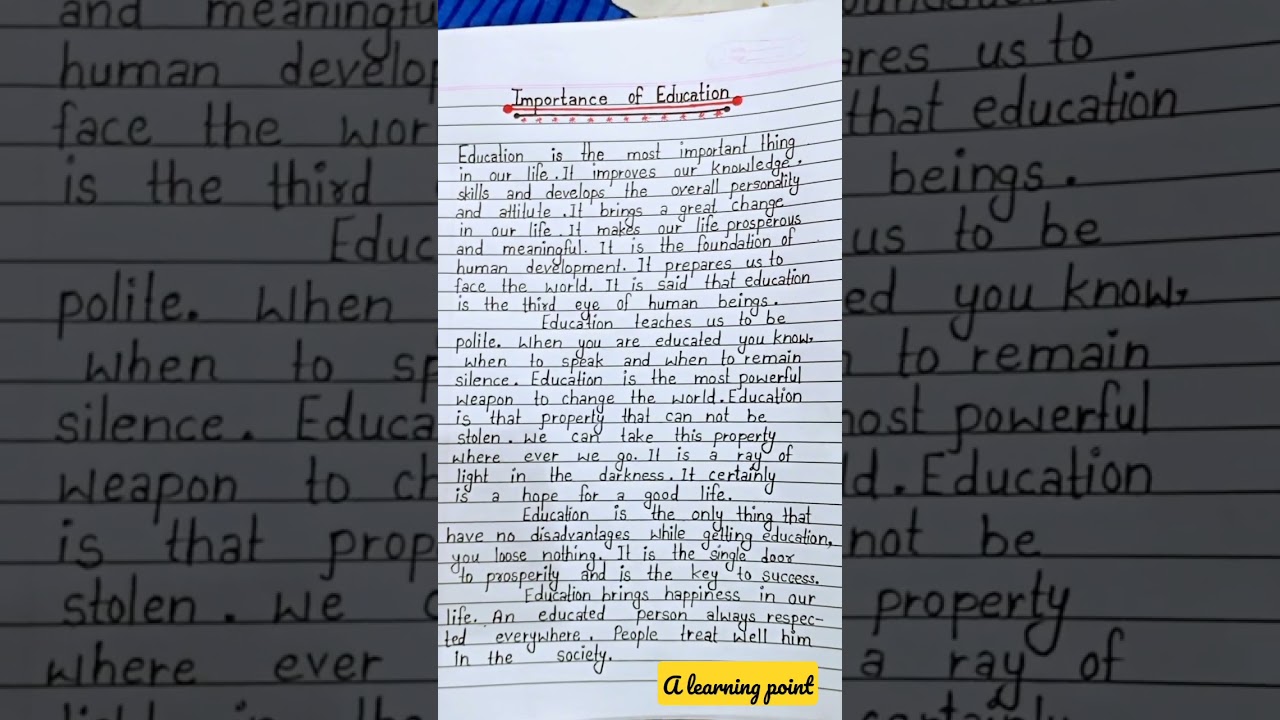 Importance of Education
Education is the most important thing
in our life. It improves our knowledge.
skills and develops the overall personality
and attitute. It brings a great change
in our life. It makes our life prosperous
and meaningful. It is the foundation of
human development. It prepares us to
face the world. It is said that education
is the third eye of human beings.
Education teaches us to be
polite. When you are educated you know,
when to speak and when to remain
silence. Education is the most powerful
weapon to change the world. Education
is that property that can not be
stolen. We can take this property
where ever we go. It is a ray of
light in the darkness. It certainly
is a hope for a good life.
Education is the only thing that
have no disadvantages while getting education,
you loose nothing. It is the single door
to prosperity and is the key to success.
Education brings happiness in our
life. An educated person always respec-
ted everywhere. People treat well him
in the society.
A learning point